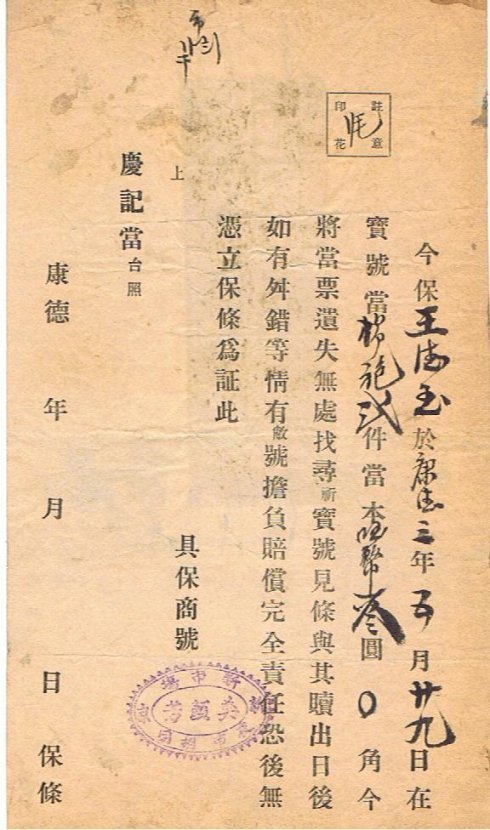 註意
印花
今保王玉於康德三年五月廿九日在
寶號當棉袍弍件當本國幣叁圓〇角今
將當票遺失無處找尋祈寶號見條與其贖出日後
如有舛錯等情有敝號擔負賠償完全責任恐後無
憑立保條爲証此
上
慶記當台照
具保商號
康德 年 月 日 保條